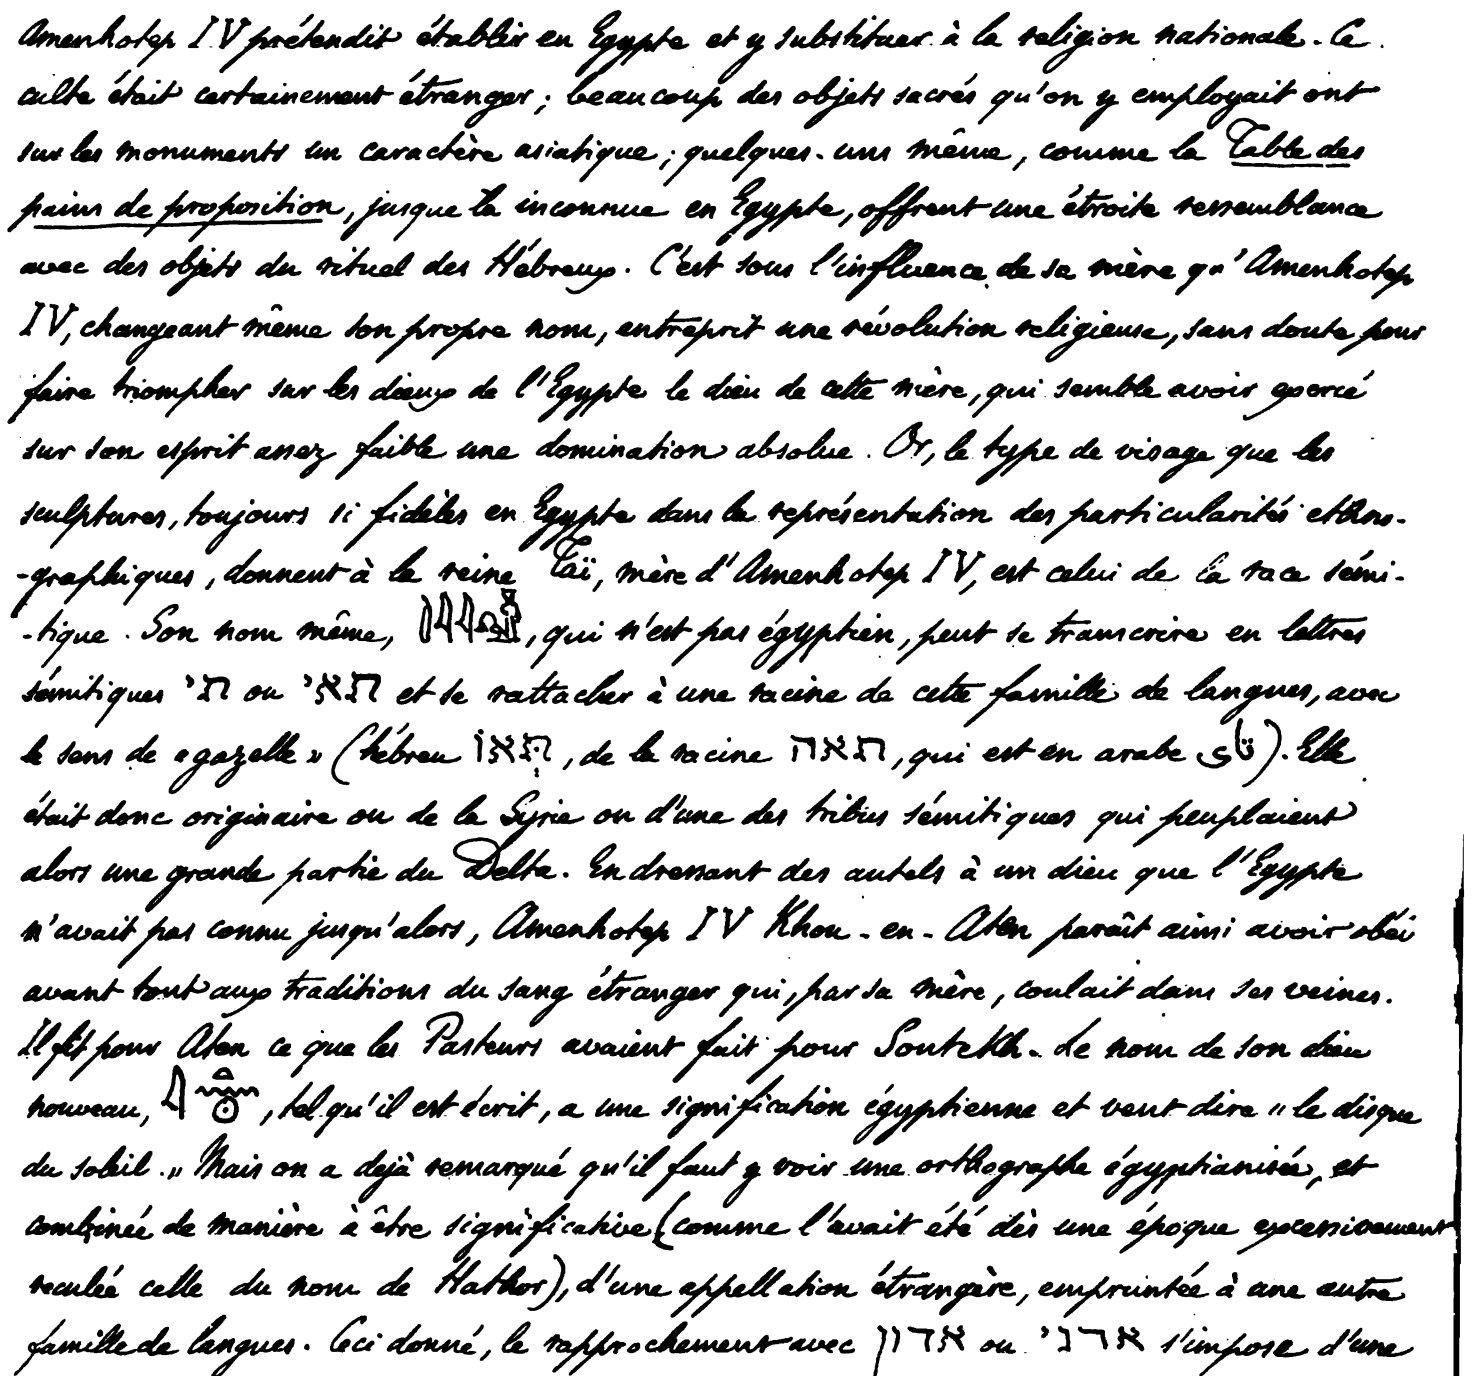 Amenhotep IV prétendit établir en Egypte et y substituer à la religion nationale. Ce
culte était certainement étranger ; beaucoup des objets sacrés qu'on y employait ont
sur les monuments un caractère asiatique ; quelques-uns même, comme la Table des
pains de proposition, jusque là inconnue en Egypte, offrent une étroite ressemblance
avec des objets du rituel des Hébreux. C'est sous l'influence de sa mère qu'Amenhotep
IV, changeant même son propre nom, entreprit une révolution religieuse, sans doute pour
faire triompher sur les dieux de l'Egypte le dieu de cette mère, qui semble avoir exercé
sur son esprit assez faible une domination absolue. Or, le type de visage que les
sculptures, toujours si fidèles en Egypte dans la représentation des particularités ethno-
-graphiques, donnent à la reine Taï, mère d'Amenhotep IV, est celui de la race sémi-
-tique. Son nom même, , qui n'est pas égyptien, peut se transcrire en lettres
sémitiques תי ou תאי et se rattacher à une racine de cette famille de langues, avec
le sens de « gazelle » (hébreu תְּאוֹ, de la racine תאה, qui est en arabe ثأى). Elle
était donc originaire ou de la Syrie ou d'une des tribus sémitiques qui peuplaient
alors une grande partie du Delta. En dressant des autels à un dieu que l'Egypte
n'avait pas connu jusqu'alors, Amenhotep IV Khou-en-Aten paraît ainsi avoir obéi
avant tout aux traditions du sang étranger qui, par sa mère, coulait dans ses veines.
Il fit pour Aten ce que les Pasteurs avaient fait pour Soutekh. Le nom de son dieu
nouveau, 𓇋𓏏𓈖𓇳, tel qu'il est écrit, a une signification égyptienne et veut dire « le disque
du soleil. » Mais on a déjà remarqué qu'il faut y voir une orthographe égyptianisée, et
combinée de manière à être significative (comme l'avait été dès une époque excessivement
reculée celle du nom de Hathor), d'une appellation étrangère, empruntée à une autre
famille de langues. Ceci donné, le rapprochement avec אדון ou אדני s'impose d'une